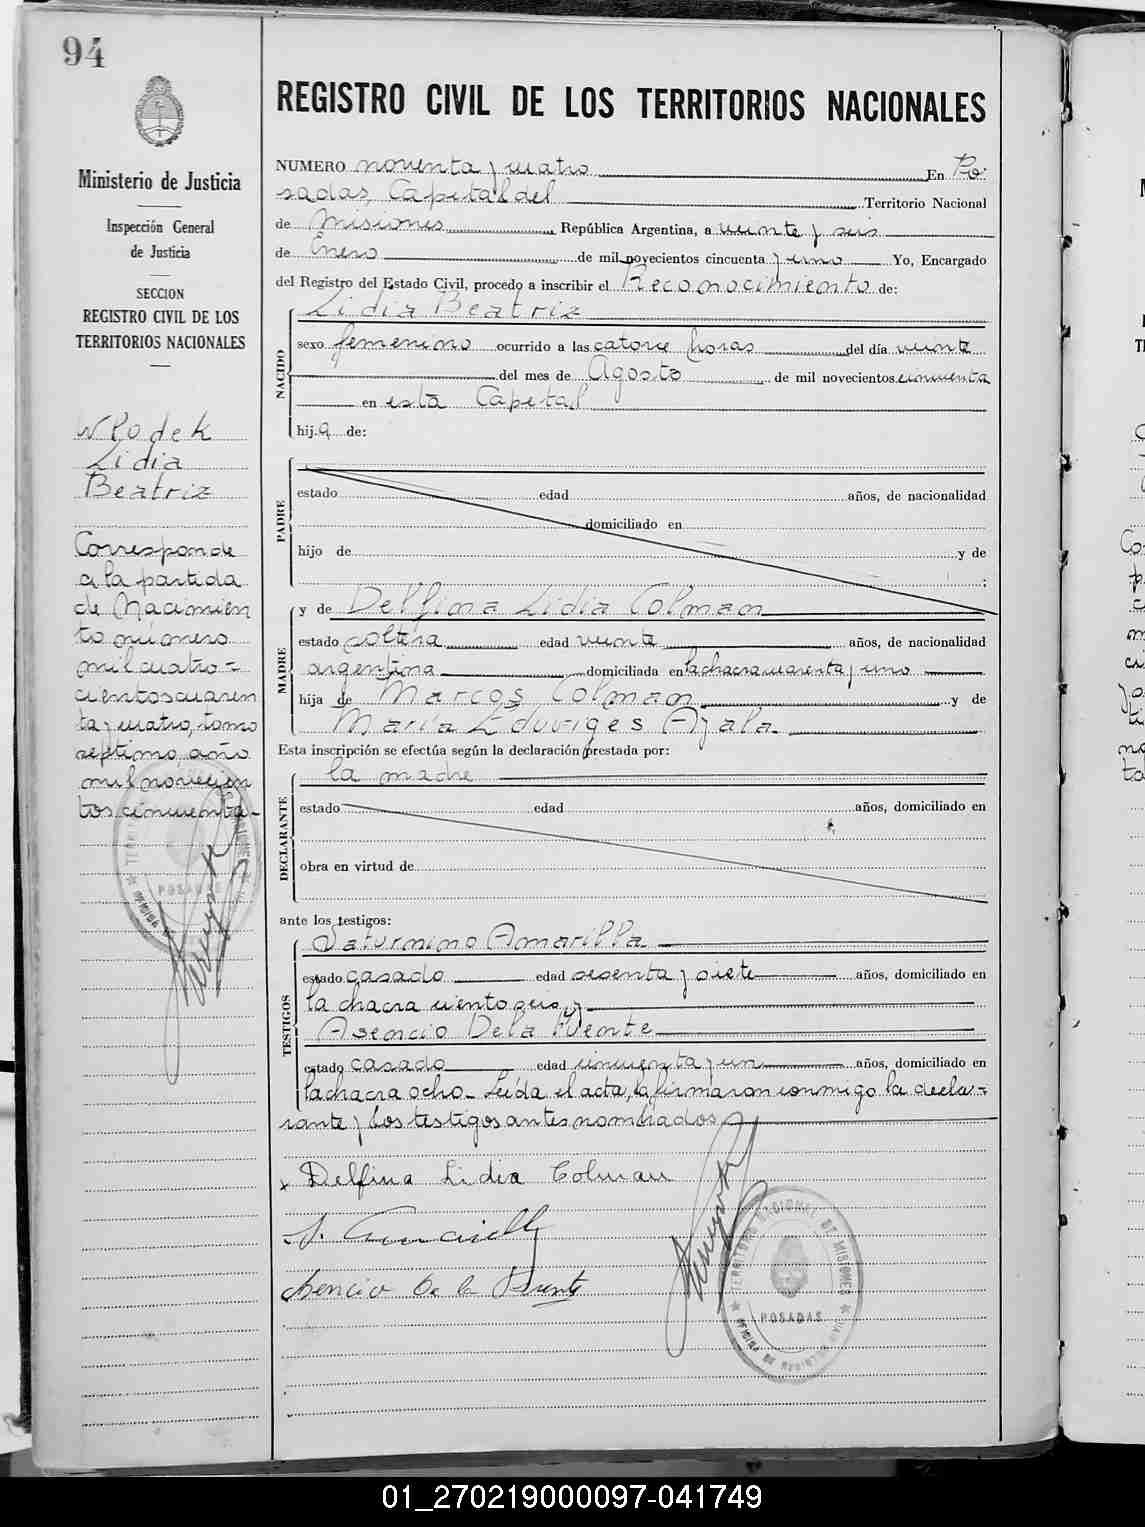 94
Ministerio de Justicia
Inspección General
de Justicia
SECCION
REGISTRO CIVIL DE LOS
TERRITORIOS NACIONALES
Wlodek
Lidia
Beatriz
Corresponde
a la partida
de Nacimien
to número
mil cuatro-
cientos cuaren
ta y cuatro, tomo
septimo año
mil novecien
tos cincuenta-
POSADAS
REGISTRO CIVIL DE LOS TERRITORIOS NACIONALES
NUMERO noventa y cuatro En Po-
sadas, Capital del Territorio Nacional
de Misiones República Argentina, a veinte y seis
de Enero de mil novecientos cincuenta y uno Yo, Encargado
del Registro del Estado Civil, procedo a inscribir el Reconocimiento de:
NACIDO
Lidia Beatriz
sexo femenino ocurrido a las catorce horas del día veinte
del mes de Agosto de mil novecientos cincuenta
en esta Capital
hija de:
PADRE
estado edad años, de nacionalidad
domiciliado en
hijo de y de
:
MADRE
y de Delfina Lidia Colman
estado soltera edad veinte años, de nacionalidad
argentina domiciliada en la chacra cuarenta y uno
hija de Marcos Colman y de
María Eduviges Ayala
Esta inscripción se efectúa según la declaración prestada por:
DECLARANTE
la madre
estado edad años, domiciliado en
obra en virtud de
ante los testigos:
TESTIGOS
Saturnino Amarilla
estado casado edad sesenta y siete años, domiciliado en
la chacra ciento seis, y
Asencio De la Puente
estado casado edad cincuenta y un años, domiciliado en
la chacra ocho- Leída el acta, la firmaron conmigo la decla-
rante y los testigos antes nombrados
x Delfina Lidia Colman
S. Amarilla
Asencio De la Puente
TERRITORIO NACIONAL DE MISIONES
POSADAS
01_270219000097-041749